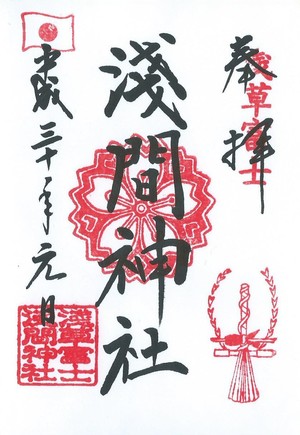 奉拝
浅草富士
淺間神社
平成三十年元日
浅草富士
浅間神社